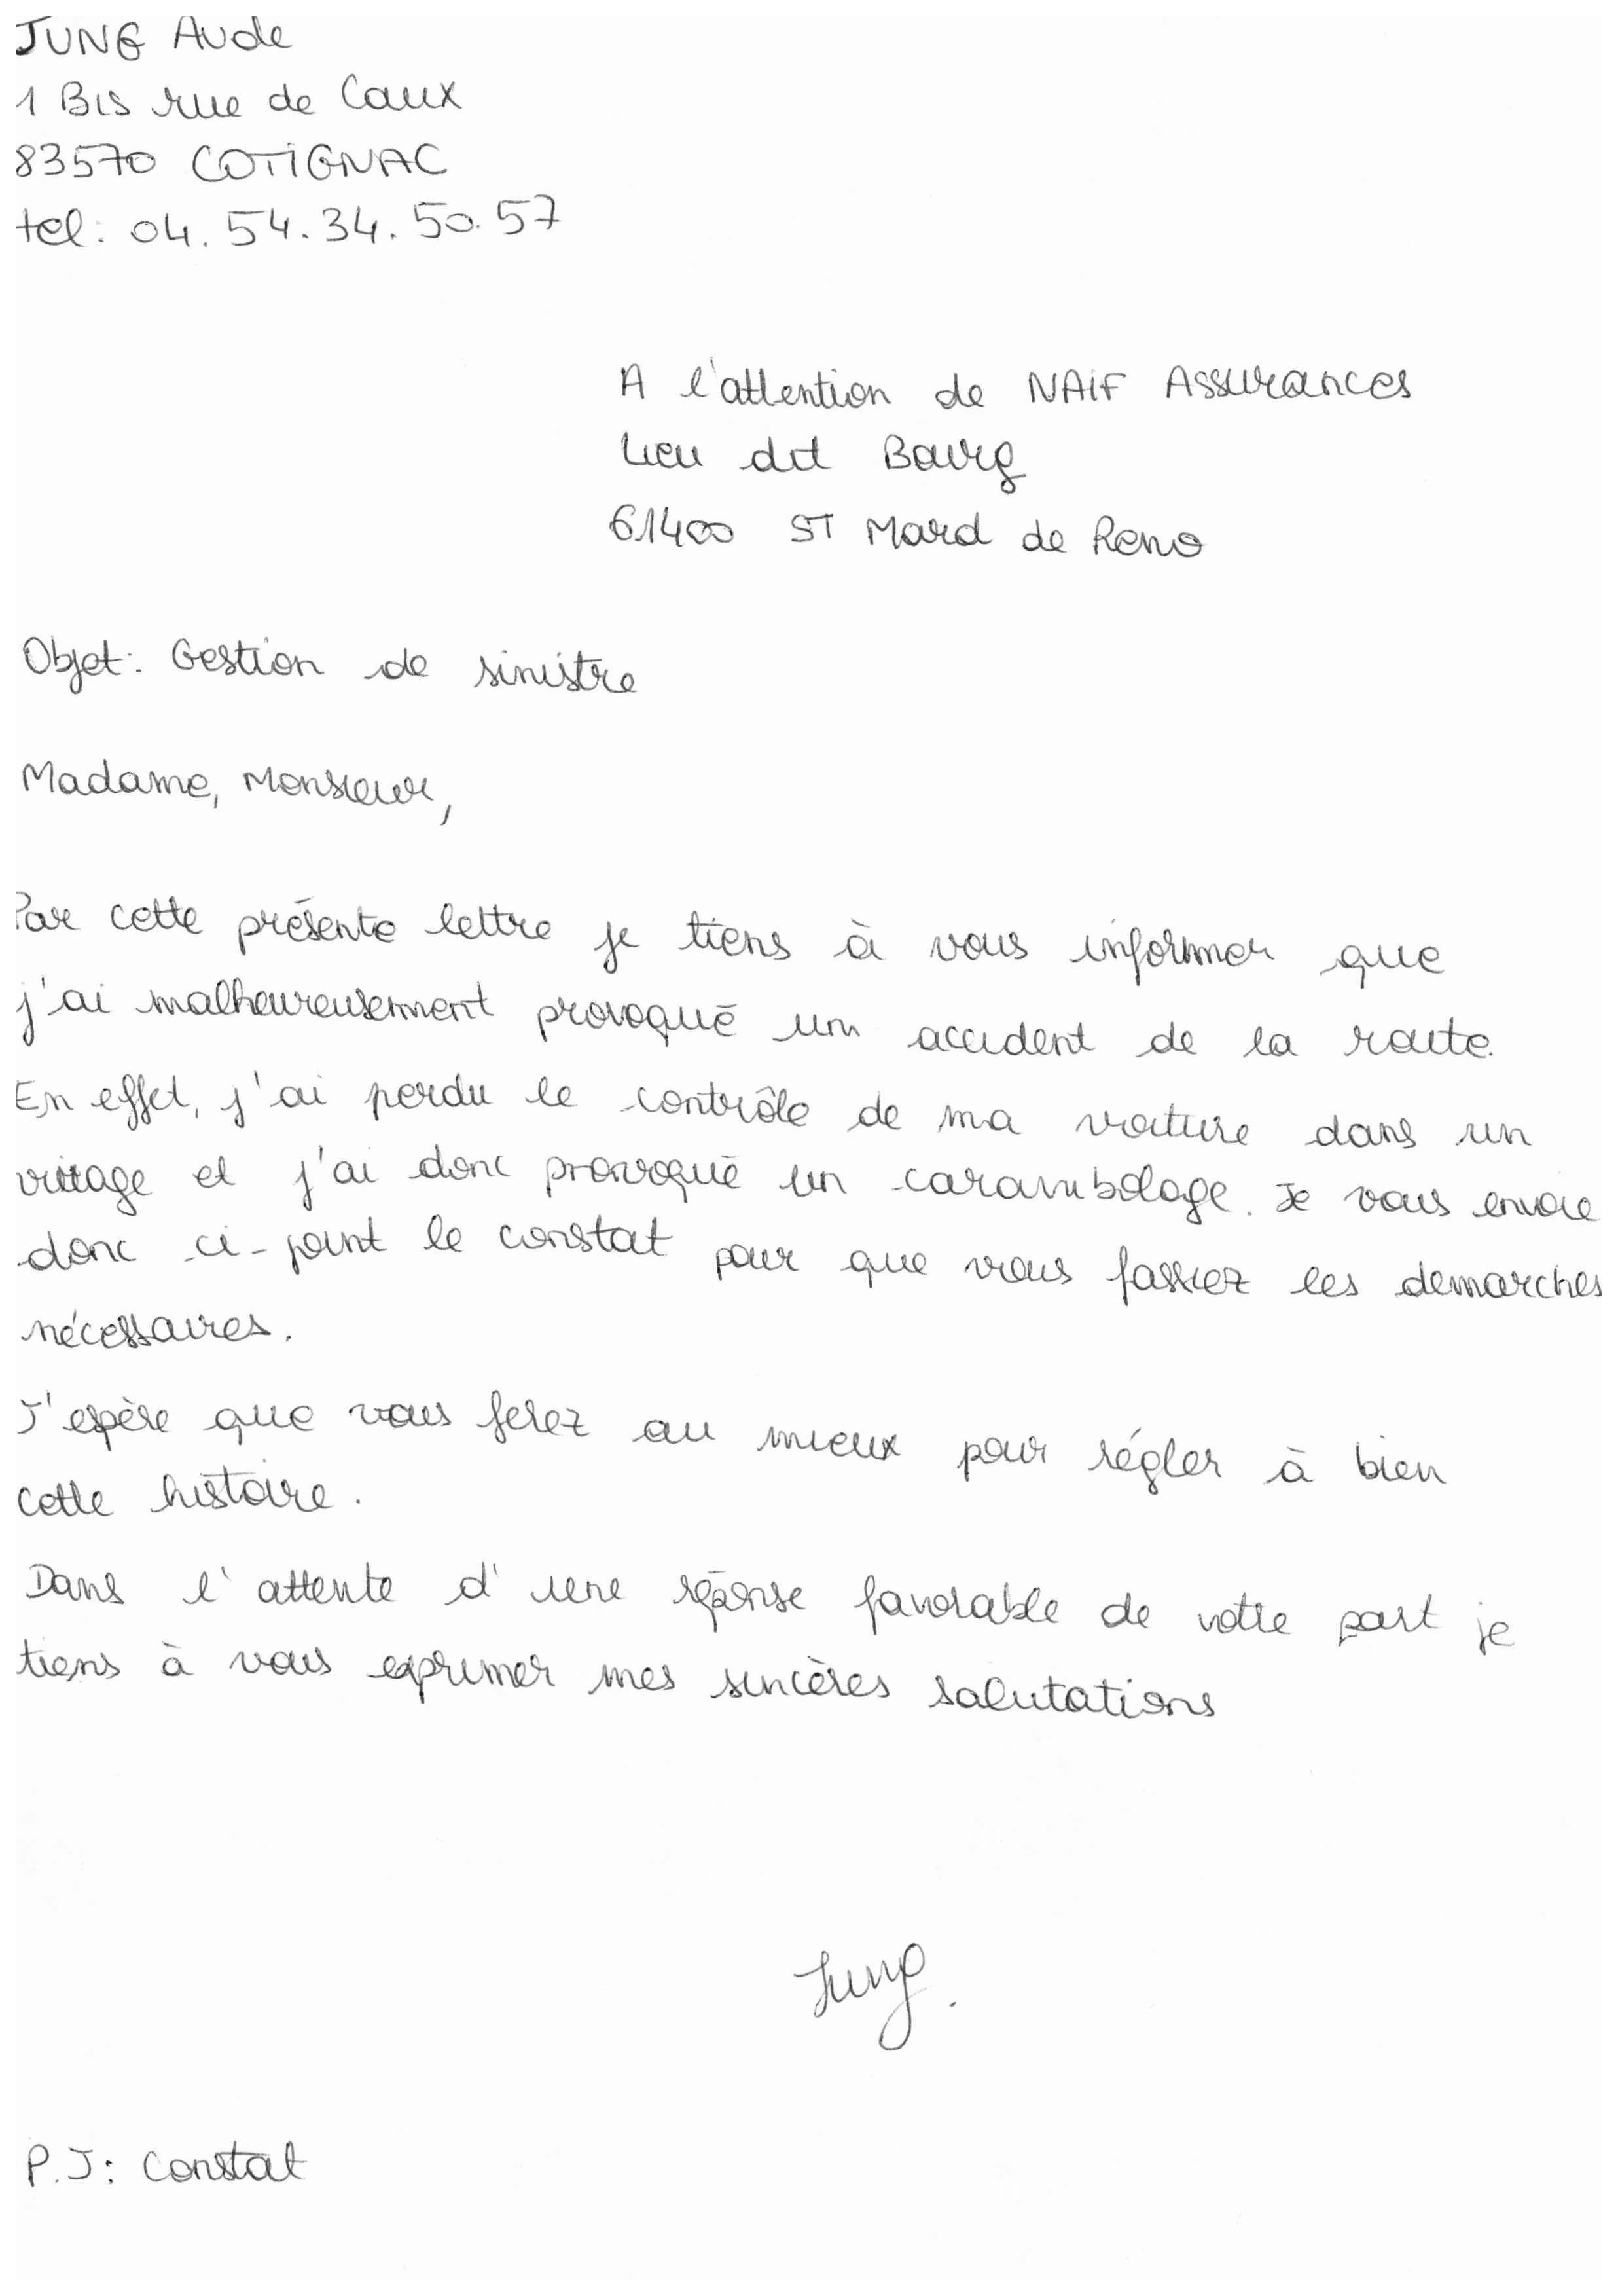 JUNG Aude
1 Bis rue de Caux
83570 COTIGNAC
tel: 04.54.34.50.57
A l'attention de NAIF Assurances
Lieu dit Bourg
61400 ST Mard de Reno
Objet: Gestion de sinistre
Madame, Monsieur,
Par cette présente lettre je tiens à vous informer que
j'ai malheureusement provoqué un accident de la route.
En effet, j'ai perdu le contrôle de ma voiture dans un
virage et j'ai donc provoqué un carambolage. Je vous envoie
donc ci-joint le constat pour que vous fassiez les demarches
nécessaires.
J'espère que vous ferez au mieux pour régler à bien
cette histoire.
Dans l'attente d'une réponse favorable de votre part je
tiens à vous exprimer mes sincères salutations
Jung.
P.J: Constat